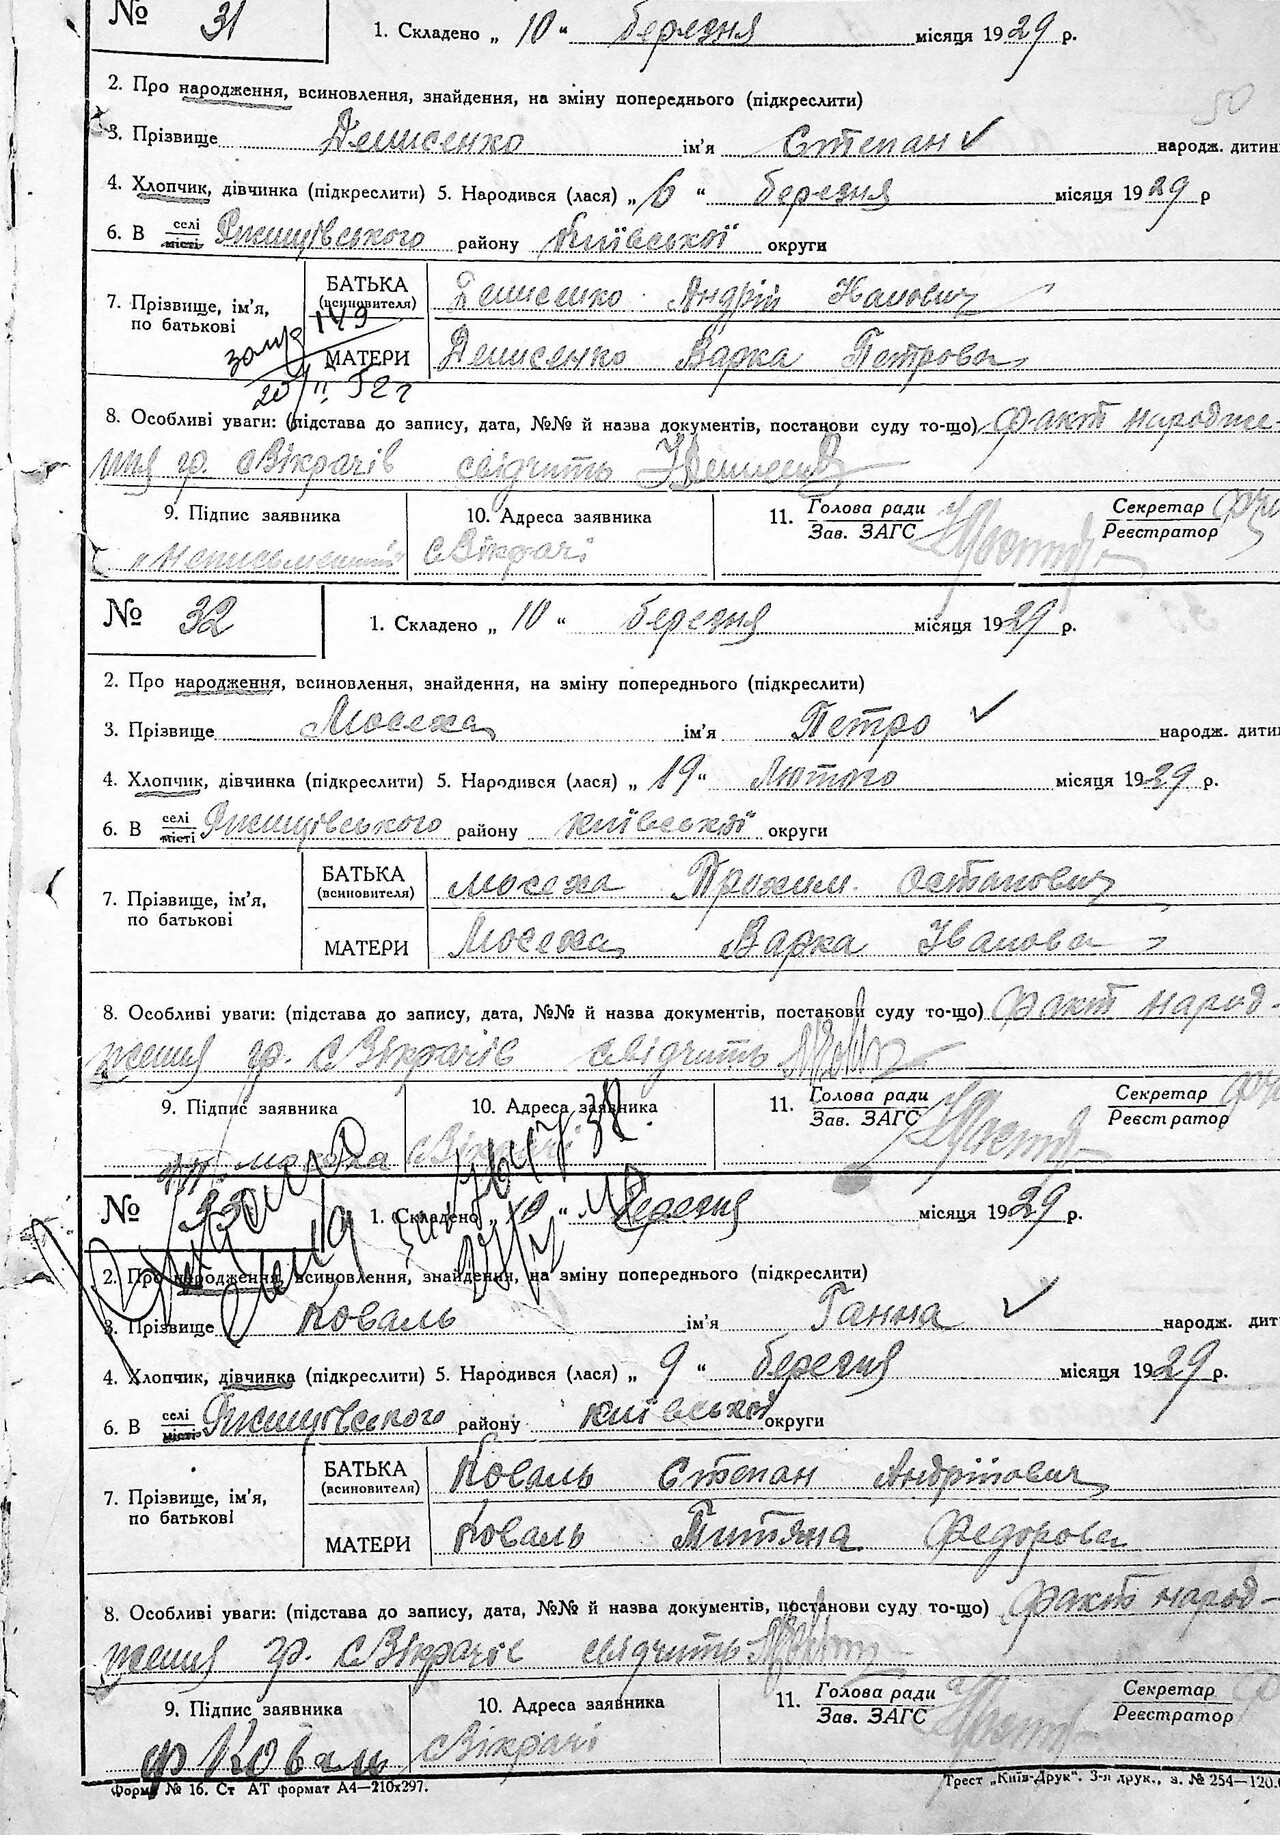 № 31 1. Складено „ 10 “ березня місяця 1929 р.
50
2. Про народження, всиновлення, знайдення, на зміну попереднього (підкреслити)
3. Прізвище Денисенко ім'я Степан ✓ народж. дитин
4. Хлопчик, дівчинка (підкреслити) 5. Народився (лася) „ 6 “ березня місяця 1929 р
6. В селі місті Ржищівського району Київської округи
7. Прізвище, ім'я, по батькові
БАТЬКА (всиновителя) Денисенко Андрій Иванович
149
20/II 52 г
МАТЕРИ Денисенко Варка Петрова
8. Особливі уваги: (підстава до запису, дата, №№ й назва документів, постанови суду то-що) факт народже-
ння гр. с Вікрачів свідчить
9. Підпис заявника 10. Адреса заявника 11. Голова ради Зав. ЗАГС Секретар Реєстратор
„Неписьменний“ с Вікрачі
№ 32 1. Складено „ 10 “ березня місяця 1929 р.
2. Про народження, всиновлення, знайдення, на зміну попереднього (підкреслити)
3. Прізвище Мосеха ім'я Петро ✓ народж. дити
4. Хлопчик, дівчинка (підкреслити) 5. Народився (лася) „ 19 “ Лютого місяця 1929 р.
6. В селі місті Ржищівського району Київської округи
7. Прізвище, ім'я, по батькові
БАТЬКА (всиновителя) Мосеха Прохим Остапович
МАТЕРИ Мосеха Варка Иванова
8. Особливі уваги: (підстава до запису, дата, №№ й назва документів, постанови суду то-що) факт народ-
ження гр. с Вікрачів свідчить
9. Підпис заявника 10. Адреса заявника 11. Голова ради Зав. ЗАГС Секретар Реєстратор
Мосеха с Вікрачі
№ 33 1. Складено „ 10 “ березня місяця 1929 р.
2. Про народження, всиновлення, знайдення, на зміну попереднього (підкреслити)
3. Прізвище Коваль ім'я Ганна ✓ народж. дит
4. Хлопчик, дівчинка (підкреслити) 5. Народився (лася) „ 9 “ березня місяця 1929 р.
6. В селі місті Ржищівського району Київської округи
7. Прізвище, ім'я, по батькові
БАТЬКА (всиновителя) Коваль Степан Андрійович
МАТЕРИ Коваль Титяна Федорова
8. Особливі уваги: (підстава до запису, дата, №№ й назва документів, постанови суду то-що) факт народ-
ження гр. с Вікрачів свідчить
9. Підпис заявника 10. Адреса заявника 11. Голова ради Зав. ЗАГС Секретар Реєстратор
Коваль с Вікрачі
Форма № 16. Ст АТ формат А4—210x297. Трест „Київ-Друк“. 3-я друк., з. № 254—120.0